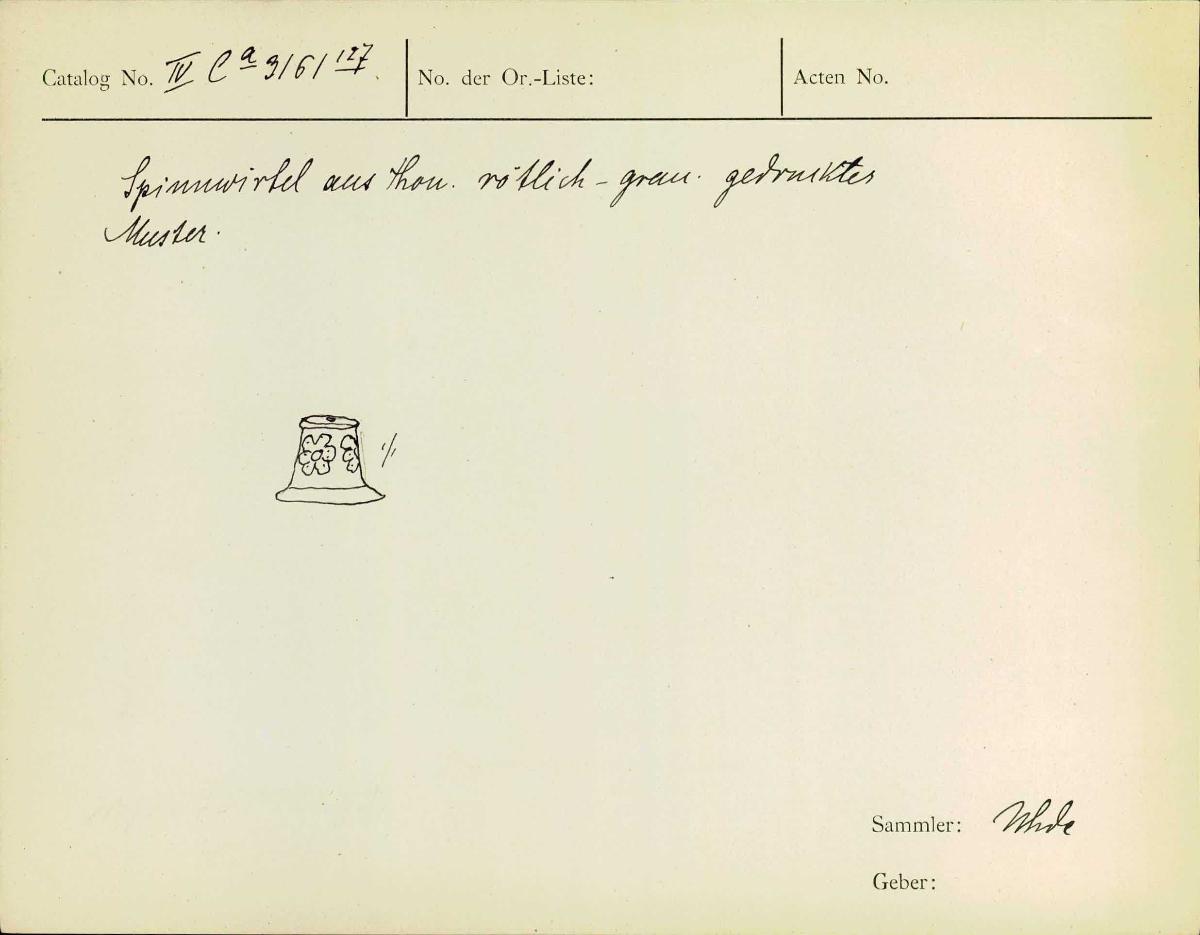 Catalog No. IV Ca 3161 127 No. der Or.-Liste: Acten No.
Spinnwirtel aus Thon. rötlich-grau. gedrucktes
Muster.
1/1
Sammler: Uhde
Geber: